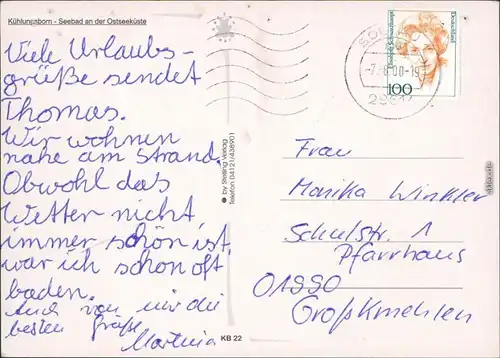 Kühlungsborn - Seebad an der Ostseeküste
Viele Urlaubs-
grüße sendet
Thomas.
Wir wohnen
nahe am Strand.
Obwohl das
Wetter nicht
immer schön ist,
war ich schon oft
baden.
Auch von mir die
besten Grüße
Martina
by Sterling Verlag
Telefon 04121/438901
KB 22
Deutschland
100
Frau
Monika Winkler
Schulstr. 1
Pfarrhaus
01990
Großkmehlen